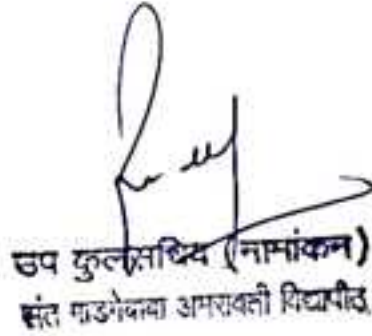 उप कुलसचिव (नामांकन)
संत गाडगेबाबा अमरावती विद्यापीठ,